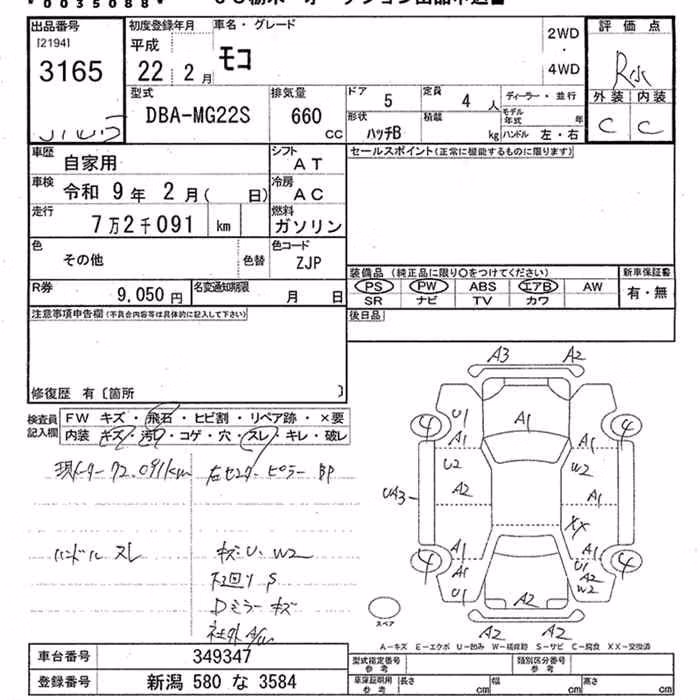 * 0035088 *
出品番号
[2194]
3165
初度登録年月
平成
22 年 2 月
車名・グレード
モコ
2WD
・
4WD
評価点
外装 内装
C C
型式
DBA-MG22S
排気量
660
CC
ドア
5
定員
4 人
ディーラー・並行
モデル年式 年
形状
ハッチB
積載
kg
ハンドル 左・右
車歴
自家用
シフト
AT
セールスポイント(正常に機能するものに限ります)
車検
令和 9 年 2 月( 日)
冷房
AC
走行
7万2千091 km
燃料
ガソリン
色
その他
色替
色コード
ZJP
装備品 (純正品に限り○をつけてください)
新車保証書
PS PW ABS エアB AW
有・無
SR ナビ TV カワ
R券
9,050 円
名変通知期限
月 日
後日品
注意事項申告欄(不具合内容等は具体的に記入して下さい)
修復歴 有〔箇所 〕
検査員記入欄
FW キズ・飛石・ヒビ割・リペア跡・×要
内装 キズ・汚れ・コゲ・穴・スレ・キレ・破レ
現メーター 72,091km
右センターピラー BP
ハンドル スレ
キズU、W2
下廻り S
Dミラー キズ
社外 A/W
A3 A2
4 U1 A1 4
A1 A1
U2 W2
UA3 A2 A1
XX
A1 A1
4 A1 U1 4
A2
U1 W2
A2 A2
A2 A2
スペア
A-キズ E-エクボ U-凹み W-補修跡 S-サビ C-腐食 XX-交換済
車台番号
349347
型式指定番号
参考
類別区分番号
参考
登録番号
新潟 580 な 3584
車庫証明用
参考
長さ cm
幅 cm
高さ cm